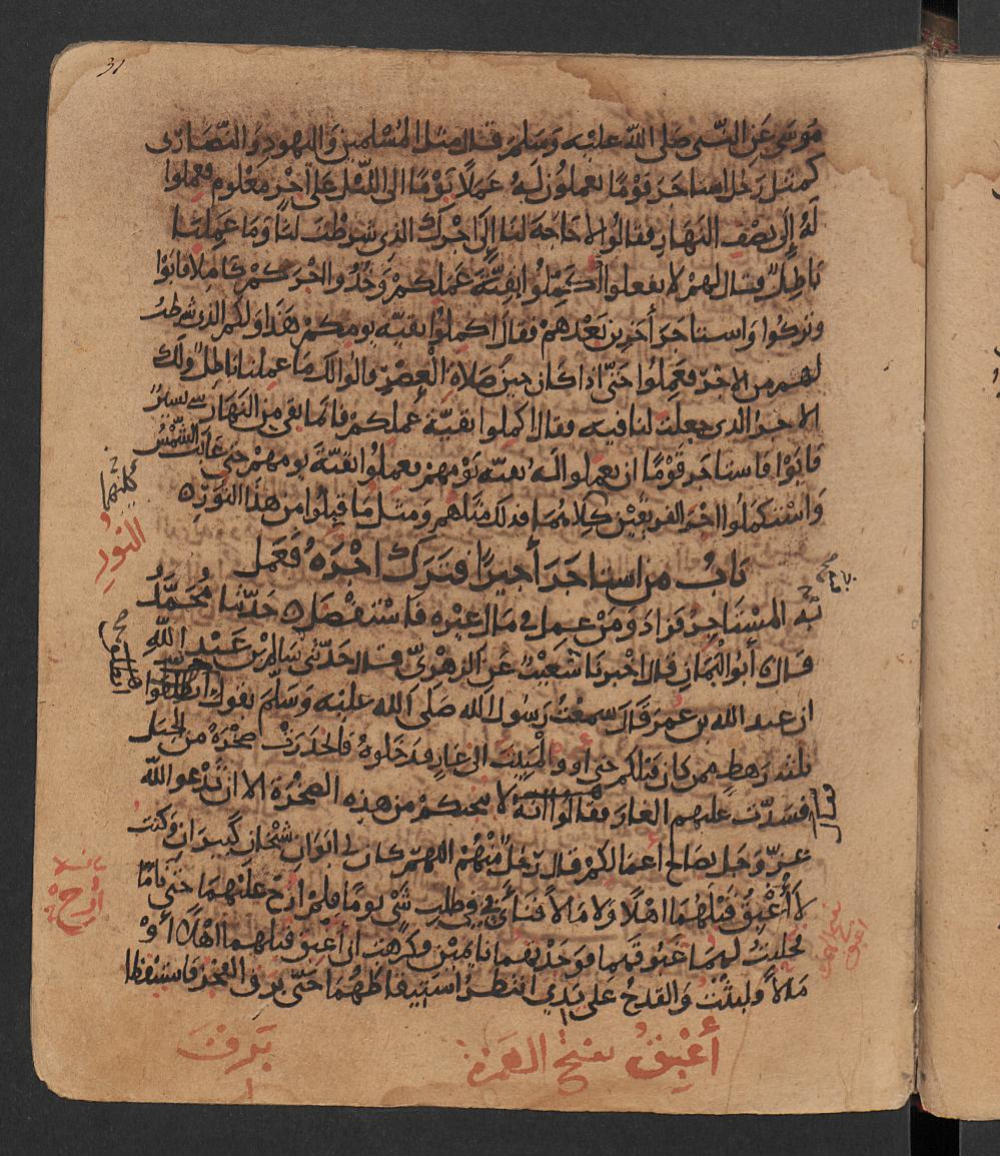 31
موسى عن النبي صلى الله عليه وسلم قال مثل المسلمين واليهود والنصارى
كمثل رجل استاجر قوما يعملون له عملا يوما الى الليل على اجر معلوم فعملوا
له إلى نصف النهار فقالوا لا حاجة لنا إلى اجرك الذي شرطت لنا وما عملنا
باطل فقال لهم لا تفعلوا اكملوا بقية عملكم وخذوا اجركم كاملا فابوا
وتركوا واستاجر أخرين بعدهم فقال اكملوا بقية يومكم هذا ولكم الذي شرطت
لهم من الاجر فعملوا حتى اذا كان حين صلاة العصر قالوا لك ما عملنا باطل ولك
الاجر الذي جعلت لنا فيه فقال اكملوا بقية عملكم فانما بقي من النهار شي يسير
فابوا فاستاجر قوما ان يعملوا له بقية يومهم فعملوا بقية يومهم حتى غابت الشمس
واستكملوا اجر الفريقين كلاهما فذلك مثلهم ومثل ما قبلوا من هذا النور ه
كليهما
النور
باب من استاجر أجيرا فترك اجره فعمل
فيه المستاجر فزاد ومن عمل في مال غيره فاستفضل ه حدثنا محمد
قال ه أبو اليمان قال اخبرنا شعيب عن الزهري قال حدثني سالم بن عبد الله
ان عبد الله بن عمر قال سمعت رسول الله صلى الله عليه وسلم يقول انطلقوا
انطلق
ثلثة رهط ممن كان قبلكم حتى أووا المبيت الى غار فدخلوه فانحدرت صخرة من الجبل
فسدت عليهم الغار فقالوا انه لا ينجيكم من هذه الصخرة الا ان تدعو الله
عز وجل بصالح أعمالكم قال رجل منهم اللهم كان لي ابوان شيخان كبيران وكنت
لا أغبق قبلهما اهلا ولا مالا فنأى بي في طلب شي يوما فلم ارح عليهما حتى ناما
أرح
فحلبت لهما غبوقهما فوجدتهما نايمين وكرهت ان اغبق قبلهما اهلا أو
مالا ولبثت والقدح على يدي انتظر استيقاظهما حتى برق الفجر فاستيقظا
أغبق بفتح الهمزة
برق